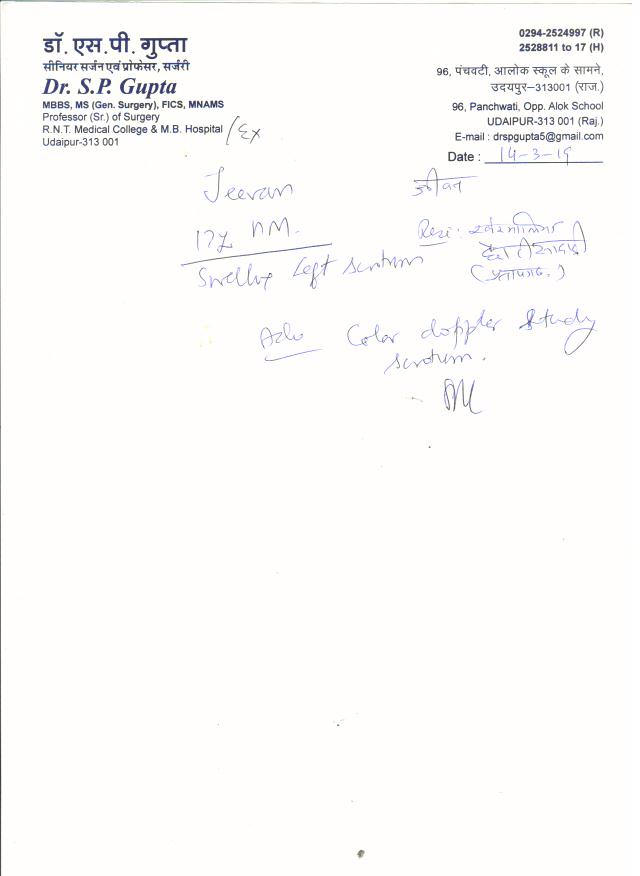 डॉ. एस.पी. गुप्ता
सीनियर सर्जन एवं प्रोफेसर, सर्जरी
Dr. S.P. Gupta
MBBS, MS (Gen. Surgery), FICS, MNAMS
Professor (Sr.) of Surgery
R.N.T. Medical College & M.B. Hospital /Ex
Udaipur-313 001
0294-2524997 (R)
2528811 to 17 (H)
96, पंचवटी, आलोक स्कूल के सामने,
उदयपुर–313001 (राज.)
96, Panchwati, Opp. Alok School
UDAIPUR-313 001 (Raj.)
E-mail : drspgupta5@gmail.com
Date : 14-3-19
Jeevan जीवन
17y
Resi:
Swelling Left scrotum
Adv Color doppler Study
scrotum.